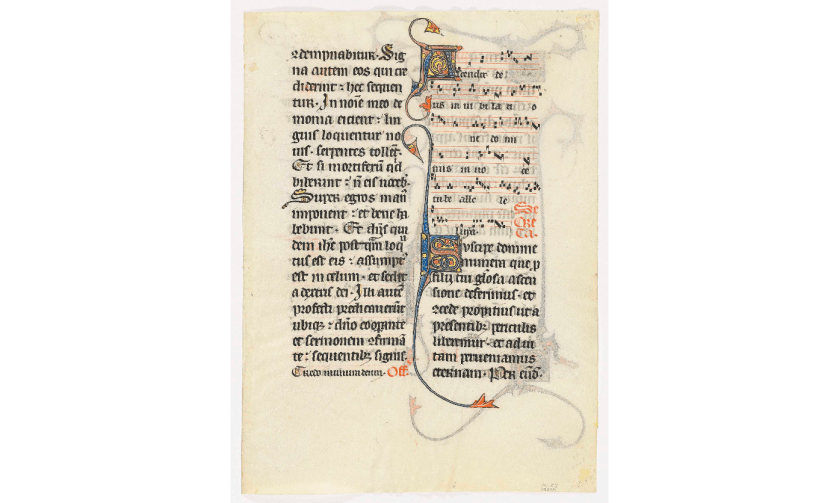 demp͞nabitur. Sig
na autem eos qui cre
diderint : hec sequen
tur. In noīe meo de
monia eicient : lin
guis loquentur no
uis. serpentes tollēt.
Et si mortiferū qͥd
biberint : n̄ eis noceb̄.
Super egros man
imponent : et bene ha
bebunt. Et dn̄s qui
dem ihc post qm̄ loq
tus est eis : assumpt
est in celum. et sedet
a dextris dei. Illi autē
profecti predicauerūt
ubiqꝫ : dn̄o cooperante
et sermonem 9firman
te : sequentibꝫ signis.
Credo in unum deum. Off.
Ascendit de
us in iu bi la ti o
ne do mi
nus in uo ce
tube alle le
luya.
SE
CRE
TA.
Suscipe domine
munera que p
filii tui gl̄osa ascen
sione deferimus. et
9cede propitius ut a
presentibꝫ periculis
liberemur. et ad ui
tam perueniamus
eternam. Per eūd.